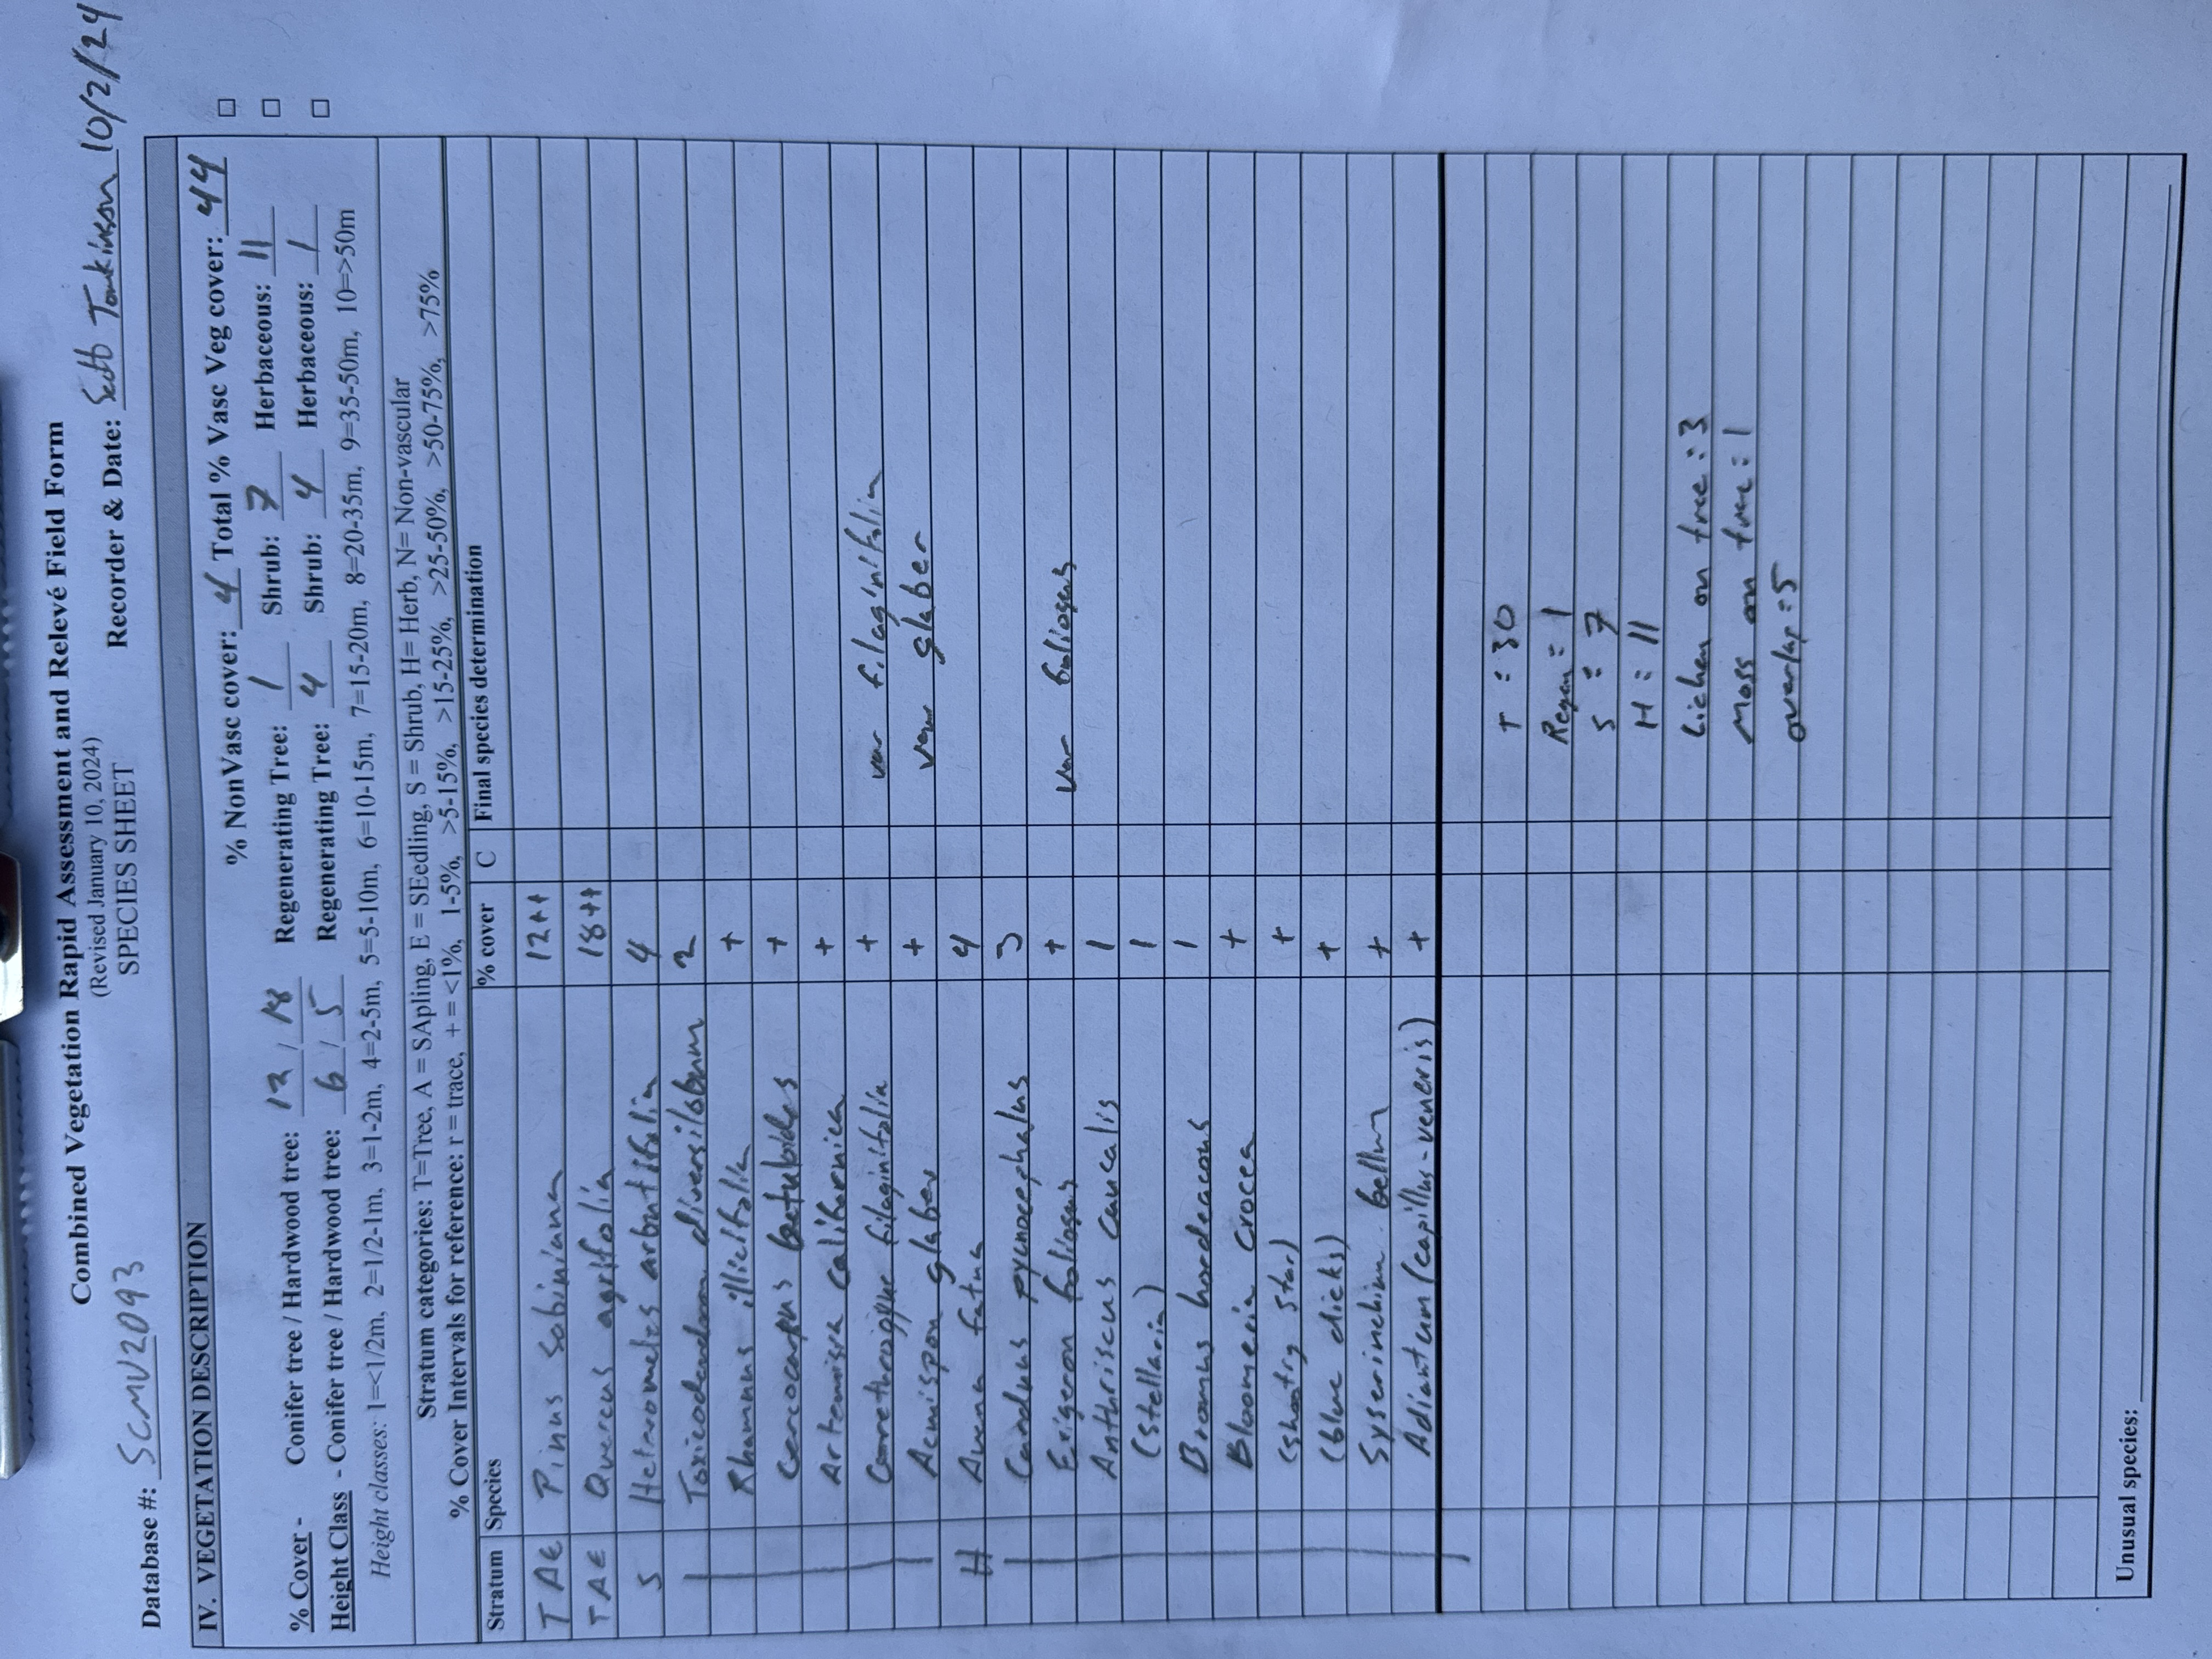 Combined Vegetation Rapid Assessment and Relevé Field Form
(Revised January 10, 2024)
Database #: SCMV2093 SPECIES SHEET Recorder & Date: Scott Tomkinson 10/2/24
IV. VEGETATION DESCRIPTION
% NonVasc cover: 4 Total % Vasc Veg cover: 44 □
% Cover - Conifer tree / Hardwood tree: 12 / 18 Regenerating Tree: 1 Shrub: 7 Herbaceous: 11 □
Height Class - Conifer tree / Hardwood tree: 6 / 5 Regenerating Tree: 4 Shrub: 4 Herbaceous: 1 □
Height classes: 1=<1/2m, 2=1/2-1m, 3=1-2m, 4=2-5m, 5=5-10m, 6=10-15m, 7=15-20m, 8=20-35m, 9=35-50m, 10=>50m
Stratum categories: T=Tree, A = SApling, E = SEedling, S = Shrub, H= Herb, N= Non-vascular
% Cover Intervals for reference: r = trace, + = <1%, 1-5%, >5-15%, >15-25%, >25-50%, >50-75%, >75%
Stratum Species % cover C Final species determination
TAE Pinus sabiniana 12++
TAE Quercus agrifolia 18++
S Hetromeles arbutifolia 4
Toxicodendron diversilobum 2
Rhamnus illicifolia +
Cercocarpus betuloides +
Artemisia californica +
Correthrogyne filaginifolia + var filaginifolia
Acmispon glaber + var glaber
H Avena fatua 4
Carduus pycnocephalus 3
Erigeron foliosus + var foliosus
Anthriscus caucalis 1
(Stellaria) 1
Bromus hordeaceous 1
Bloomeria crocea +
(shooting star) +
(blue dicks) +
Syserinchium bellum +
Adiantum (capillus-veneris) +
T = 30
Regen = 1
S = 7
H = 11
Lichen on tree = 3
Moss on tree = 1
overlap = 5
Unusual species: